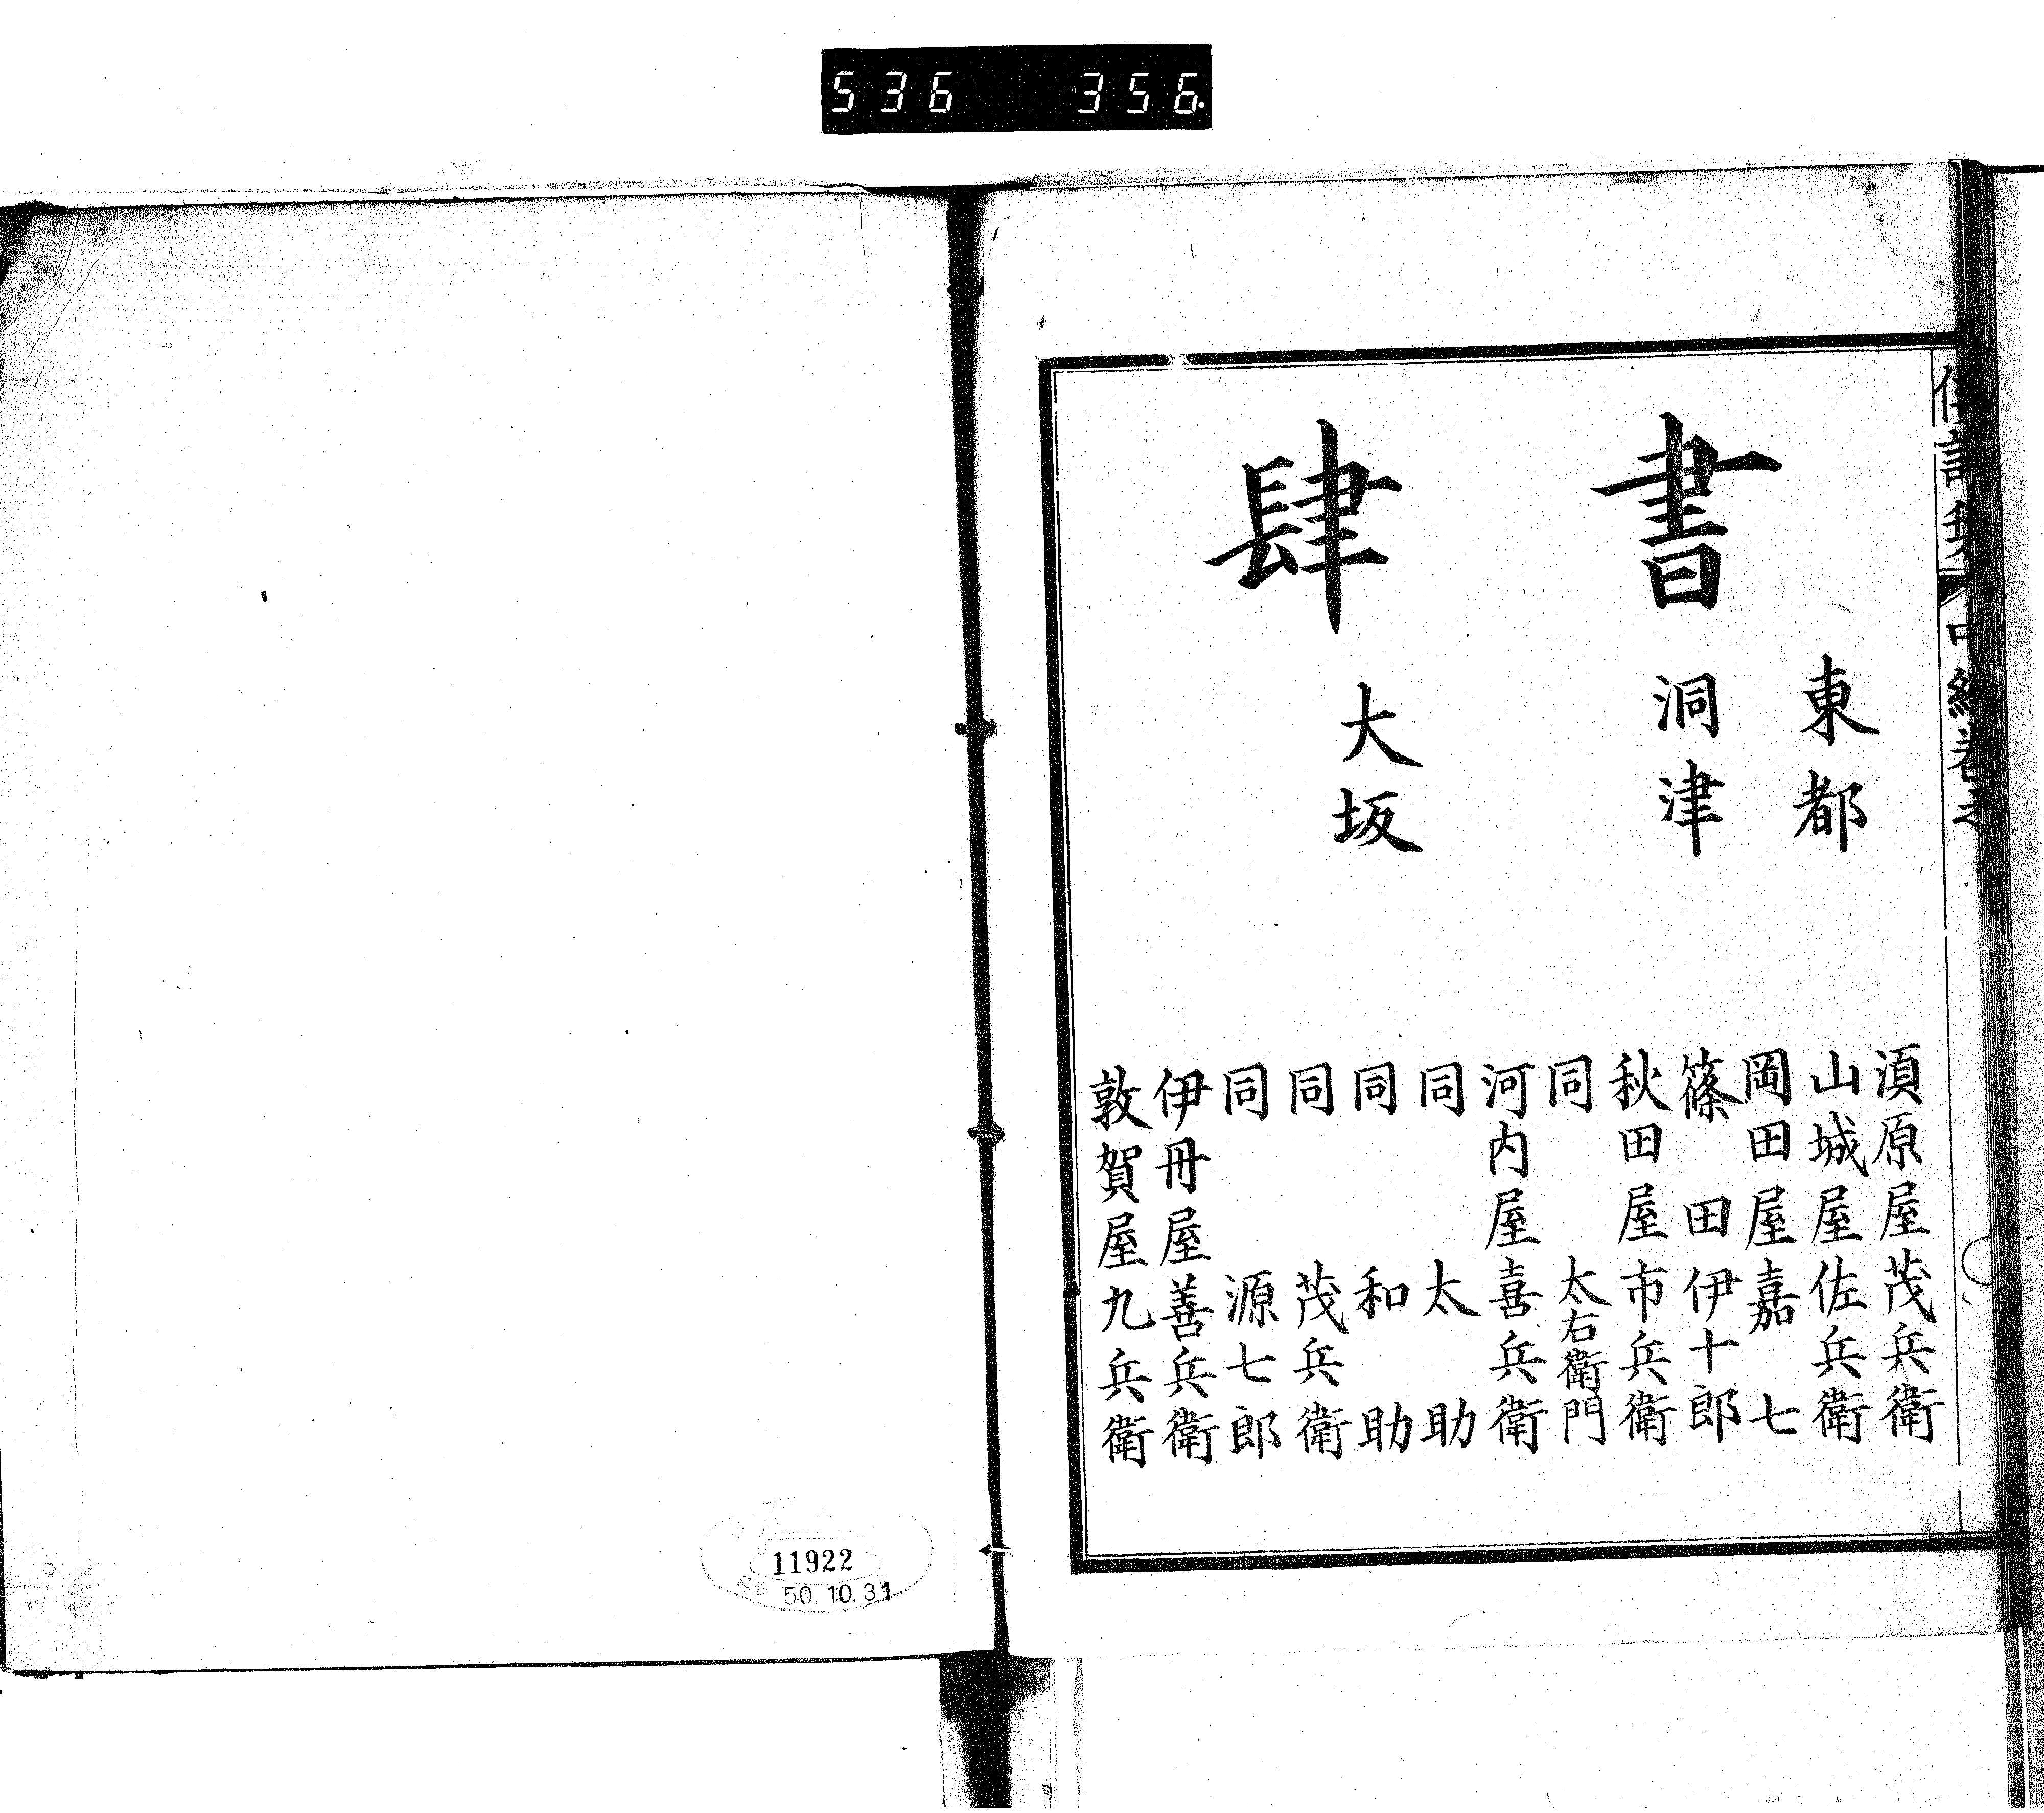 536 356
書肆
東都
湏原屋茂兵衛
山城屋佐兵衛
岡田屋嘉七
洞津
篠田伊十郎
大坂
秋田屋市兵衛
同 太右衛門
河内屋喜兵衛
同 太助
同 和助
同 茂兵衛
同 源七郎
伊丹屋善兵衛
敦賀屋九兵衛
11922
50.10.31